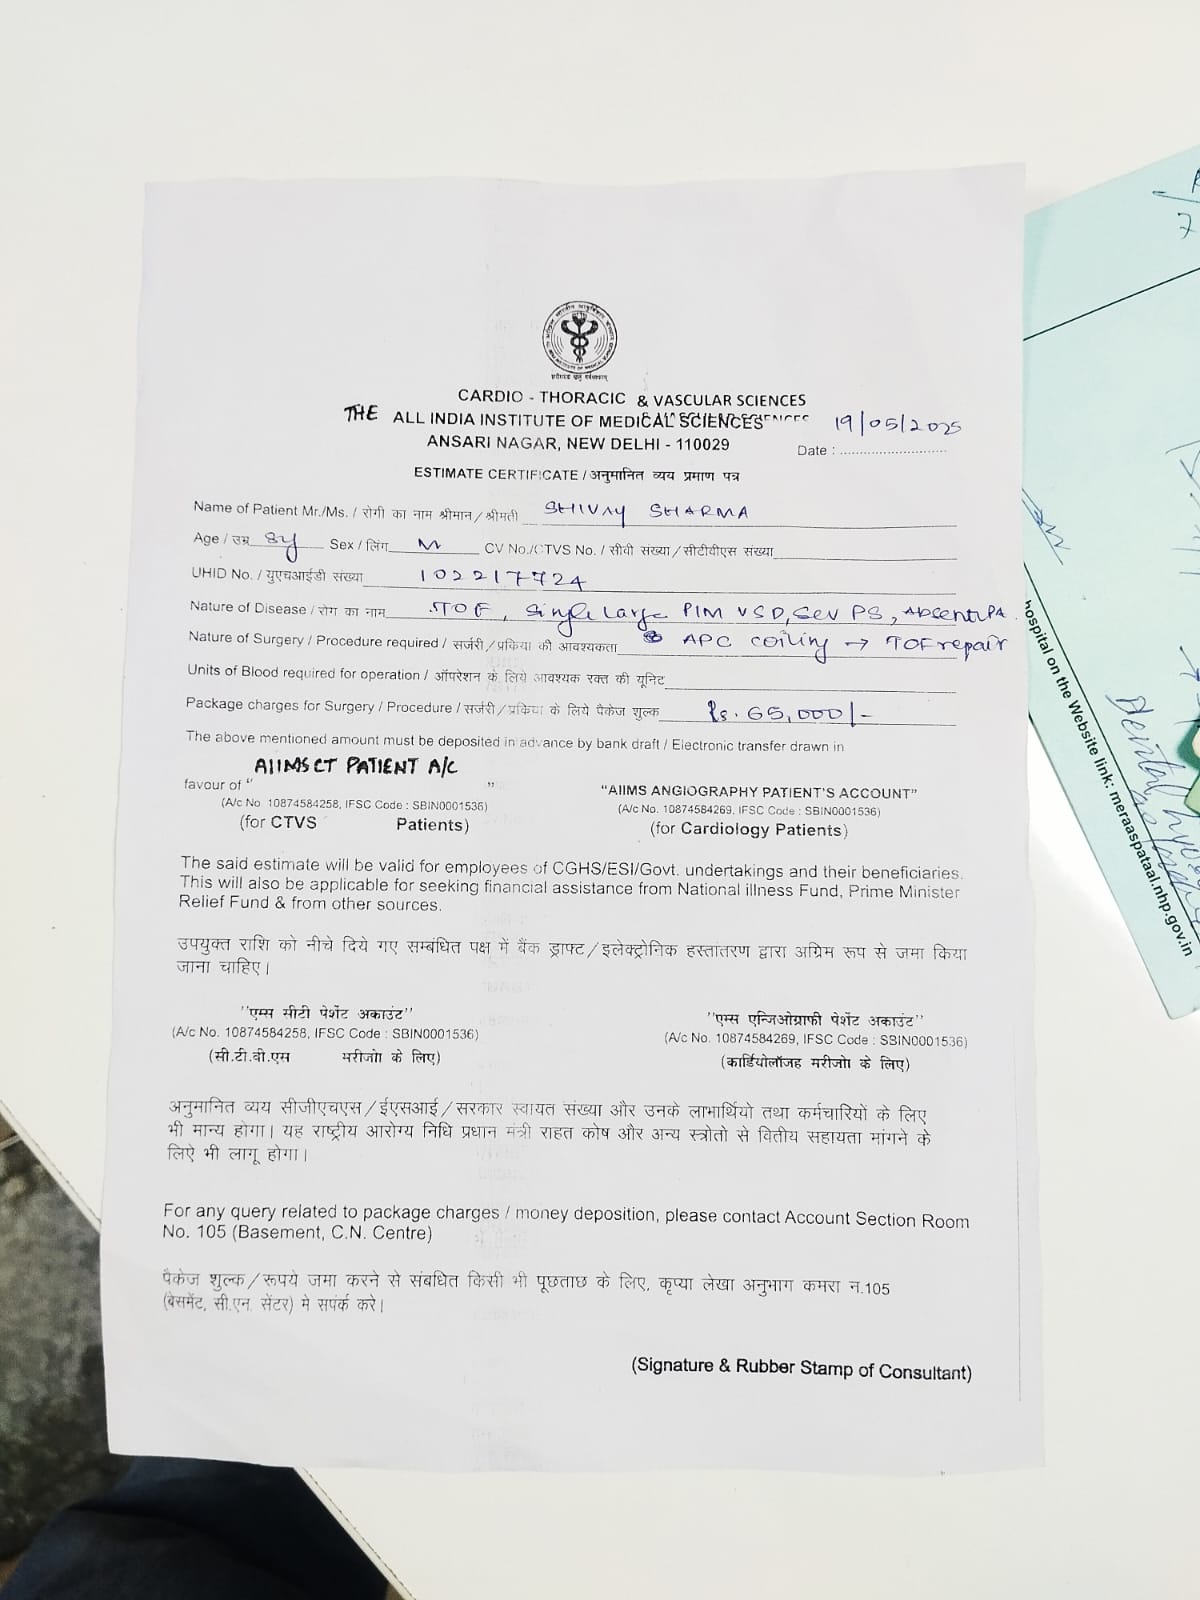 CARDIO - THORACIC & VASCULAR SCIENCES
THE ALL INDIA INSTITUTE OF MEDICAL SCIENCES
19/05/2025
ANSARI NAGAR, NEW DELHI - 110029
Date : ..........................
ESTIMATE CERTIFICATE / अनुमानित व्यय प्रमाण पत्र
Name of Patient Mr./Ms. / रोगी का नाम श्रीमान / श्रीमती SHIVAY SHARMA
Age / उम्र 8y Sex / लिंग M CV No./CTVS No. / सीवी संख्या / सीटीवीएस संख्या
UHID No. / युएचआईडी संख्या 102217724
Nature of Disease / रोग का नाम TOF, Single Large PIM VSD, Sev PS, Absent LPA
Nature of Surgery / Procedure required / सर्जरी / प्रकिया की आवश्यकता APC coiling → TOF repair
Units of Blood required for operation / ऑपरेशन के लिये आवश्यक रक्त की यूनिट
Package charges for Surgery / Procedure / सर्जरी / प्रकिया के लिये पैकेज शुल्क Rs. 65,000/-
The above mentioned amount must be deposited in advance by bank draft / Electronic transfer drawn in
AIIMS CT PATIENT A/C
favour of “ ”
“AIIMS ANGIOGRAPHY PATIENT'S ACCOUNT”
(A/c No. 10874584258, IFSC Code : SBIN0001536)
(A/c No. 10874584269, IFSC Code : SBIN0001536)
(for CTVS Patients)
(for Cardiology Patients)
The said estimate will be valid for employees of CGHS/ESI/Govt. undertakings and their beneficiaries.
This will also be applicable for seeking financial assistance from National illness Fund, Prime Minister
Relief Fund & from other sources.
उपयुक्त राशि को नीचे दिये गए सम्बंधित पक्ष में बैंक ड्राफ्ट / इलेक्ट्रोनिक हस्तांतरण द्वारा अग्रिम रूप से जमा किया
जाना चाहिए।
"एम्स सीटी पेशेंट अकाउंट"
"एम्स एन्जिओग्राफी पेशेंट अकाउंट"
(A/c No. 10874584258, IFSC Code : SBIN0001536)
(A/c No. 10874584269, IFSC Code : SBIN0001536)
(सी.टी.वी.एस मरीजो के लिए)
(कार्डियोलॉजह मरीजो के लिए)
अनुमानित व्यय सीजीएचएस / ईएसआई / सरकार स्वायत संख्या और उनके लाभार्थियो तथा कर्मचारियों के लिए
भी मान्य होगा। यह राष्ट्रीय आरोग्य निधि प्रधान मंत्री राहत कोष और अन्य स्त्रोतो से वितीय सहायता मांगने के
लिऐ भी लागू होगा।
For any query related to package charges / money deposition, please contact Account Section Room
No. 105 (Basement, C.N. Centre)
पैकेज शुल्क / रूपये जमा करने से संबधित किसी भी पूछताछ के लिए, कृप्या लेखा अनुभाग कमरा न.105
(बेसमेंट, सी.एन. सेंटर) मे सपंर्क करे।
(Signature & Rubber Stamp of Consultant)
hospital on the Website link: meraaspataal.nhp.gov.in